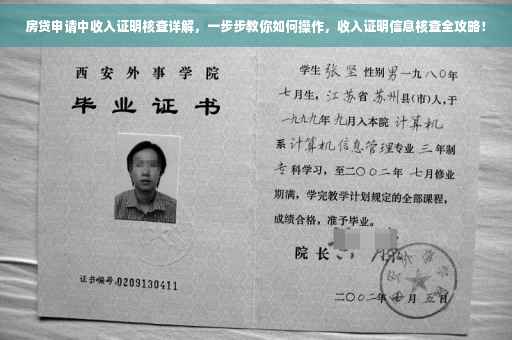 房贷申请中收入证明核查详解，一步步教你如何操作，收入证明信息核查全攻略！
西安外事学院
毕业证书
证书编号:0209130411
学生张坚性别男一九八〇年
七月生，江苏省苏州县(市)人,于
一九九九年九月入本院计算机
系计算机信息管理专业三年制
专科学习，至二〇〇二年七月修业
期满，学完教学计划规定的全部课程，
成绩合格，准予毕业。
院长
二〇〇二年 月五日